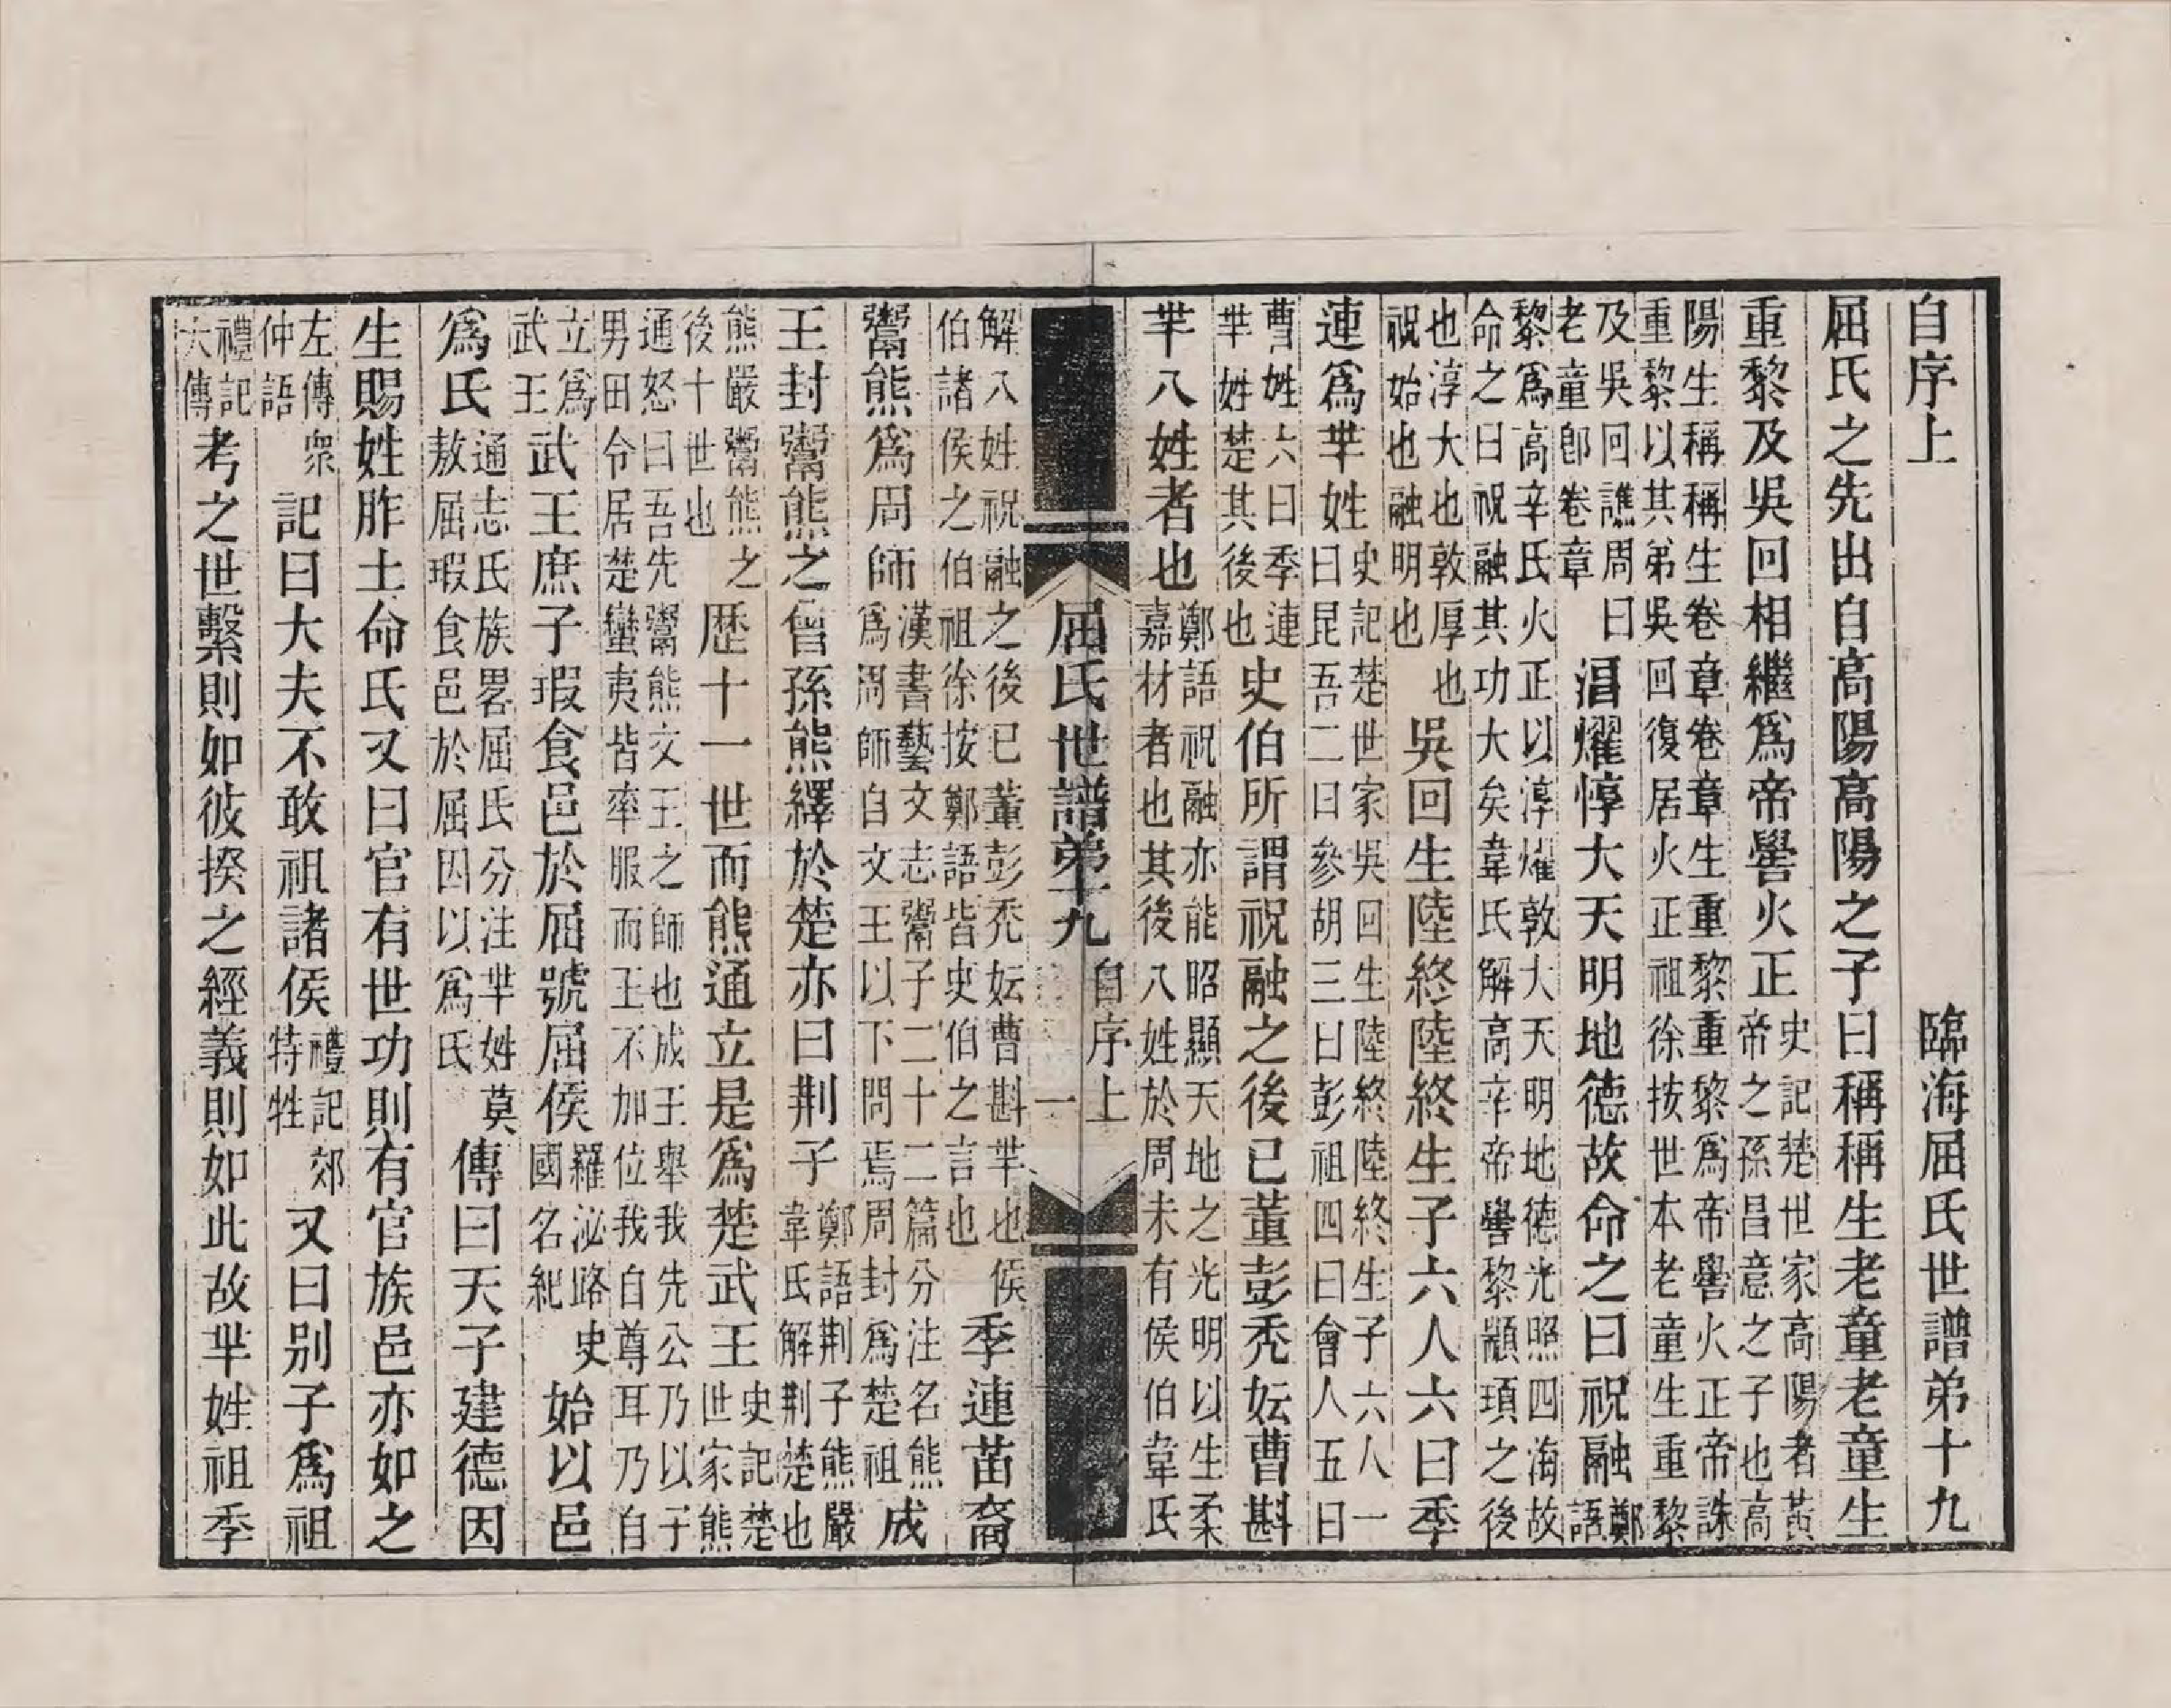 自序上　臨海屈氏世譜弟十九
屈氏之先出自高陽高陽之子曰稱稱生老童老童生
重黎及吳回相繼爲帝嚳火正史記楚世家高陽者黃
帝之孫昌意之子也高
陽生稱稱生卷章卷章生重黎重黎爲帝嚳火正帝誅
重黎以其弟吳回復居火正祖徐按世本老童生重黎
及吳回譙周曰
老童卽卷章
湻燿惇大天明地德故命之曰祝融鄭
語
黎爲高辛氏火正以淳燿敦大天明地德光照四海故
命之曰祝融其功大矣韋氏解高辛帝嚳黎顓頊之後
也淳大也敦厚也
祝始也融明也
吳回生陸終陸終生子六人六曰季
連爲芈姓史記楚世家吳回生陸終陸終生子六人一
曰昆吾二曰參胡三曰彭祖四曰會人五曰
曹姓六曰季連
芈姓楚其後也
史伯所謂祝融之後已董彭禿妘曹斟
芈八姓者也鄭語祝融亦能昭顯天地之光明以生柔
嘉材者也其後八姓於周未有侯伯韋氏
屈氏世譜弟十九　自序上　一
解八姓祝融之後已董彭禿妘曹斟芈也侯
伯諸侯之伯祖徐按鄭語皆史伯之言也
季連苗裔
鬻熊爲周師漢書藝文志鬻子二十二篇分注名熊
爲周師自文王以下問焉周封爲楚祖
成
王封鬻熊之曾孫熊繹於楚亦曰荆子鄭語荆子熊嚴
韋氏解荆楚也
熊嚴鬻熊之
後十世也
歷十一世而熊通立是爲楚武王史記楚
世家熊
通怒曰吾先鬻熊文王之師也成王舉我先公乃以子
男田令居楚蠻夷皆率服而王不加位我自尊耳乃自
立爲
武王
武王庶子瑕食邑於屈號屈侯羅泌路史
國名紀
始以邑
爲氏通志氏族畧屈氏分注芈姓莫
敖屈瑕食邑於屈因以爲氏
傳曰天子建德因
生賜姓胙土命氏又曰官有世功則有官族邑亦如之
左傳衆
仲語
記曰大夫不敢祖諸侯禮記郊
特牲
又曰別子爲祖
禮記
大傳
考之世繫則如彼揆之經義則如此故芈姓祖季